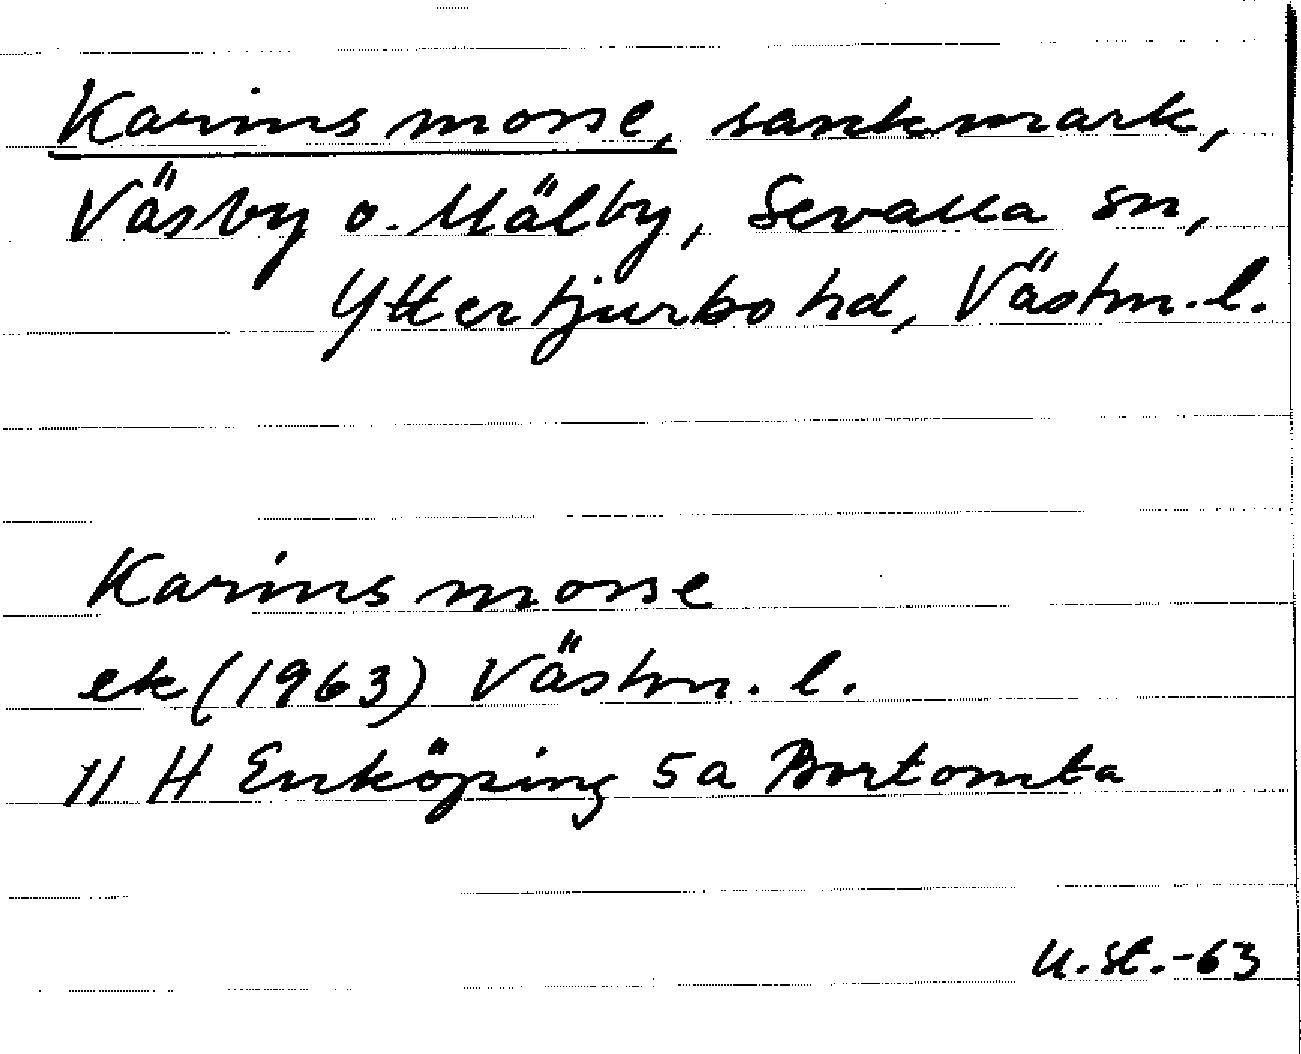 Karins mosse, sankmark,
Väsby o. Mälby, Sevalla sn,
Yttertjurbo hd, Västm. l.
Karins mosse
ek (1963) Västm. l.
11 H Enköping 5a Bortomta
U. St. -63